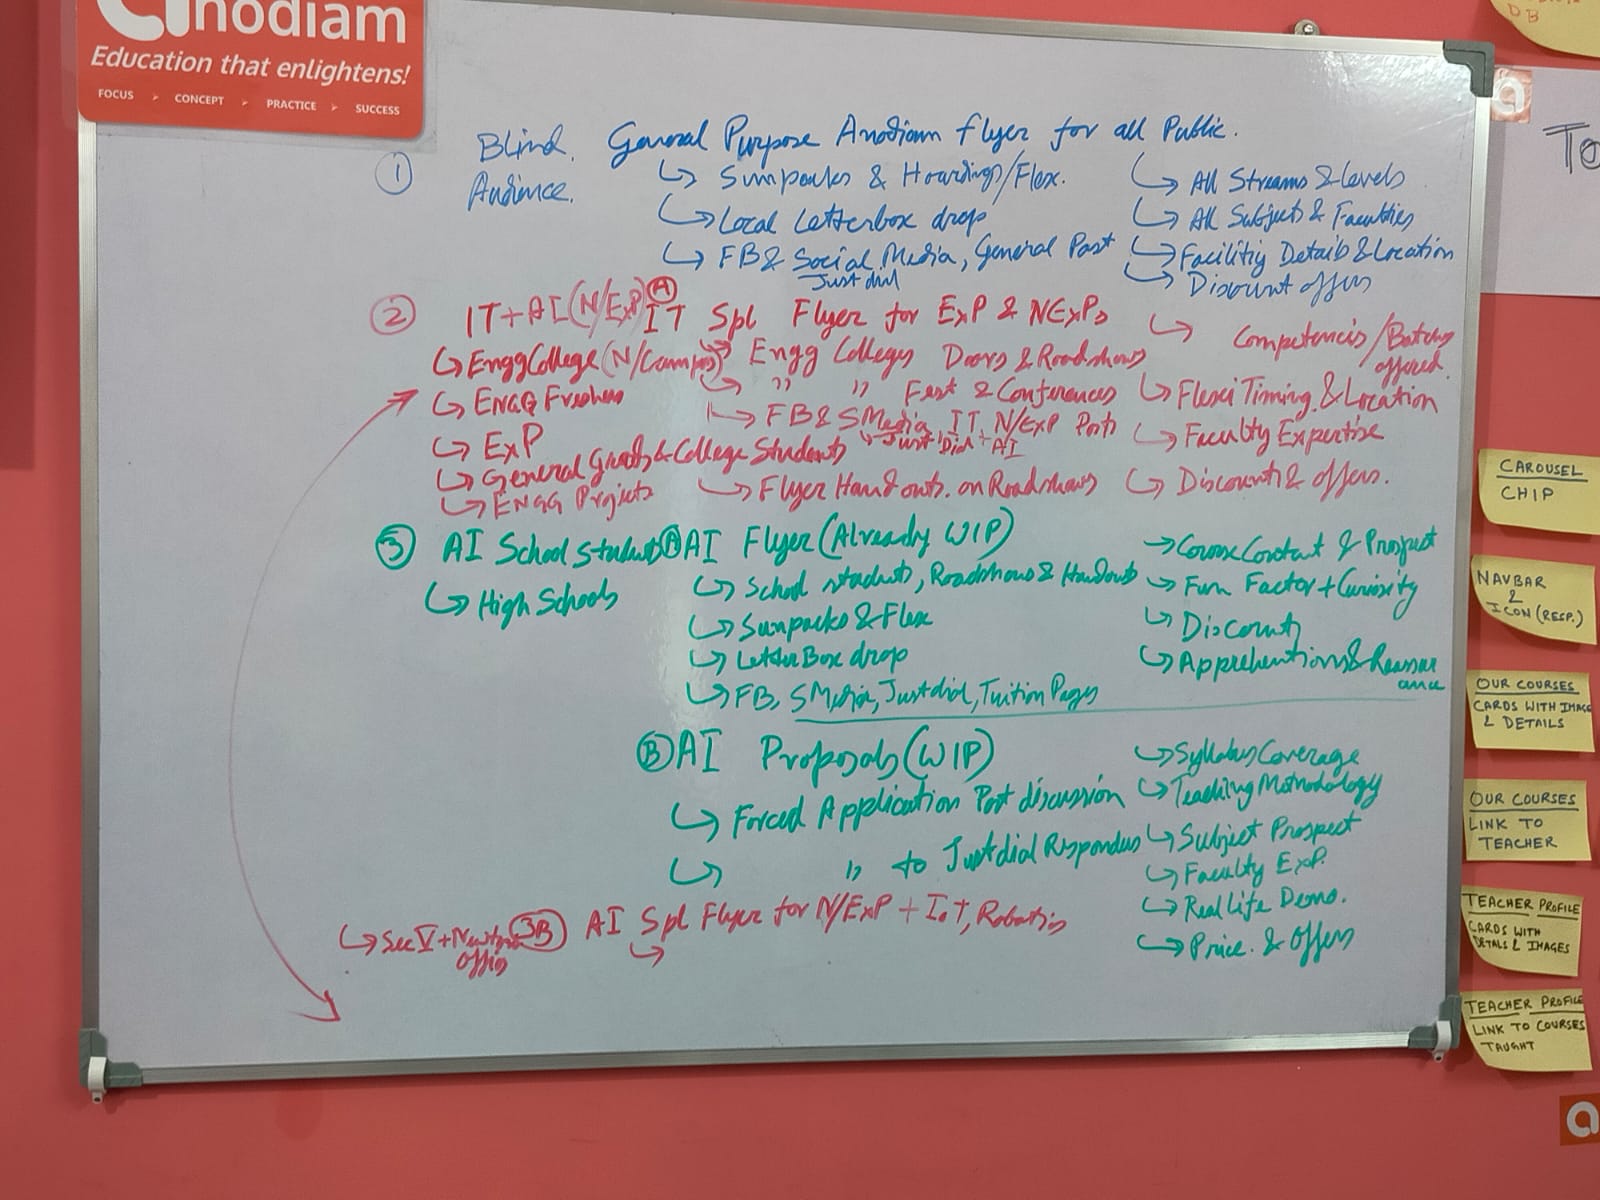 nodiam
Education that enlightens!
FOCUS > CONCEPT > PRACTICE > SUCCESS
① Blind Audience.
General Purpose Anodiam flyer for all Public.
↳ Sunpacks & Hoardings/Flex.
↳ Local Letterbox drop
↳ FB & Social Media, General Post
Just dial
↳ All Streams & Levels
↳ All Subjects & Faculties
↳ Details & Location
↳ Discount offers
② IT+AI (N/ExP)
↳ Engg College (N/Campus)
↳ ENGG Freshers
↳ ExP
↳ General Grads & College Students
↳ ENGG Projects
Ⓐ IT Spl Flyer for ExP & NExPs
↳ Engg Colleges Doors & Roadshows
↳ " " Fest & Conferences
↳ FB & SMedia, IT N/ExP Posts
↳ Just Dial + AI
↳ Flyer Handouts. on Roadshows
↳ Competencies/Batches offered.
↳ Flexi Timing. & Location
↳ Faculty Expertise
↳ Discounts & offers.
③ AI School Students
↳ High Schools
Ⓐ AI Flyer (Already WIP)
↳ School students, Roadshows & Handouts
↳ Sunpacks & Flex
↳ Letter Box drop
↳ FB, SMedia, Justdial, Tuition Pages
→ Course & Prospect
↳ Fun Factor + Curiosity
↳ Discounts
↳ Apprehentions & Reassurance
Ⓑ AI Proposals (WIP)
↳ Forced Application Post discussion
↳ " to Justdial
↳ Syllabus Coverage
↳ Teaching Methodology
↳ Subject Prospect
↳ Faculty ExP.
↳ Real Life Demo.
↳ Price. & Offers
↳ Sec V +
③B AI Spl Flyer for N/ExP + IoT, Robotics
↳
DB
To
CAROUSEL
CHIP
NAVBAR
&
ICON (RESP.)
OUR COURSES
CARDS WITH IMAGE
& DETAILS
OUR COURSES
LINK TO
TEACHER
TEACHER PROFILE
CARDS WITH
DETAILS & IMAGES
TEACHER PROFILE
LINK TO COURSES
TAUGHT